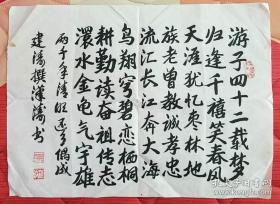 游子四十二载林
归逢千禧笑春风
天涯犹忆枣林地
族老曾教诚孝忠
流汇长江奔大海
鸟翔穹碧恋栖桐
耕勤读奋祖传志
澴水金电气宇雄
两千年清明
偶成
撰汉涛书